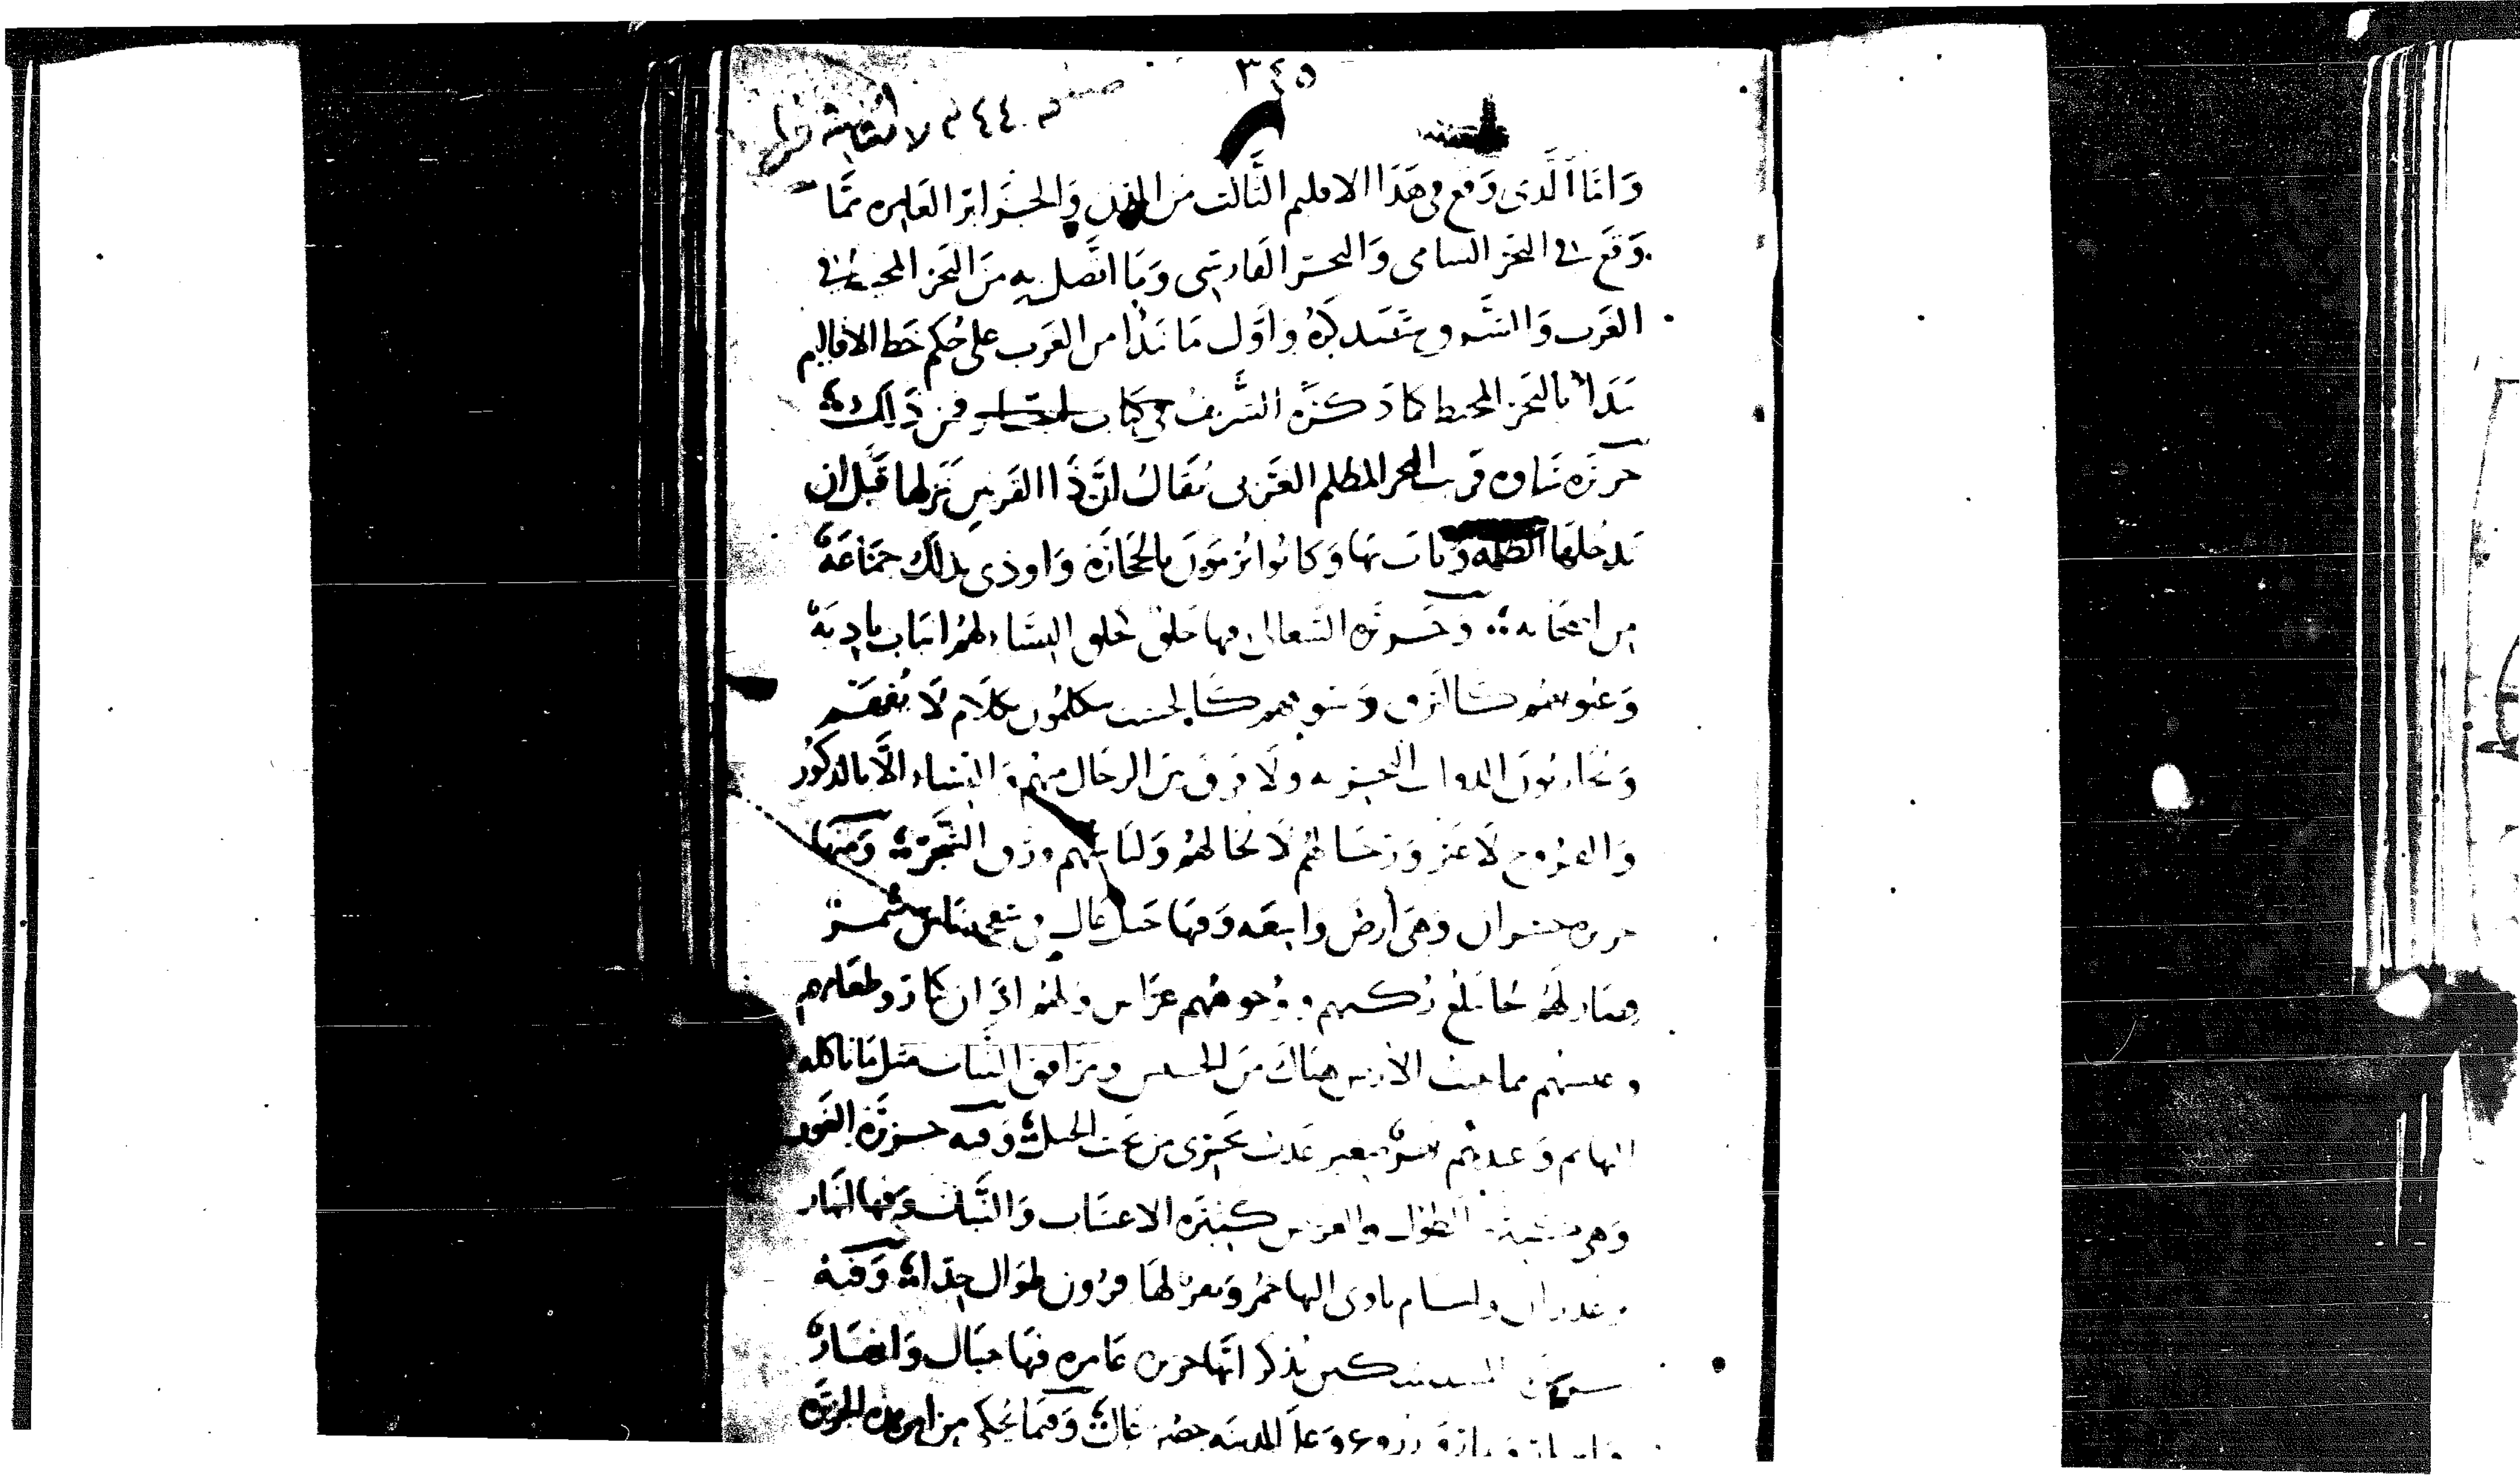 ٣٤٥
٤٤
واما الذى وقع فى هذا الاقليم الثالث من المدن والجزاير العامره مما
وقع فى البحر الشامى والبحر الفارسى وما اتصل به من البحر المحيط فى
الغرب والشرق واول ما نبدا من الغرب على حكم خط الاقاليم
نبدا بالبحر المحيط كما ذكره الشريف فى كتاب فمن ذلك
جزيرة ساوه قرب البحر المظلم الغربى يقال ان ذا القرنين نزلها قبل ان
يدخلها الظلمه وبات بها وكانوا يرمون بالحجارة واوذى بذلك جماعة
من اصحابه وجزيرة السعالى فيها خلق كخلق النساء لهم انياب بادية
وعيونهم كالبرق وسوقهم كالخشب يتكلمون بكلام لا يفهم
ويحاربون الدواب البحريه ولا فرق بين الرجال منهم والنساء الا بالذكور
والفروج لا غير ورجالهم لا لحا لهم ولباسهم ورق الشجر ومنها
جزيره حسران وهى ارض واسعه وفيها جبل عال فى سفحه ناس سمر
قصار لهم لحا تبلغ ركبهم ووجوههم عراض ولهم اذان كبار وطعامهم
وعيشهم مما تنبت الارض هناك من الحشيش ومرافق النبات مثل ما تاكله
البهايم وعندهم نهر صغير عذب يجرى من تحت الجبل وفيه جزيرة الغور
وهى الطول والعرض كثيرة الاعشاب والنبات وفيها انهار
وغدران واجام ياوى اليها حمر وبقر لها قرون طوال جدا وفيه
يذكر انها جزيره عامره فيها جبال وانهار
وزروع وعلى المدينه حصن عال وفيما يحكى من امر هذه الجزيرة